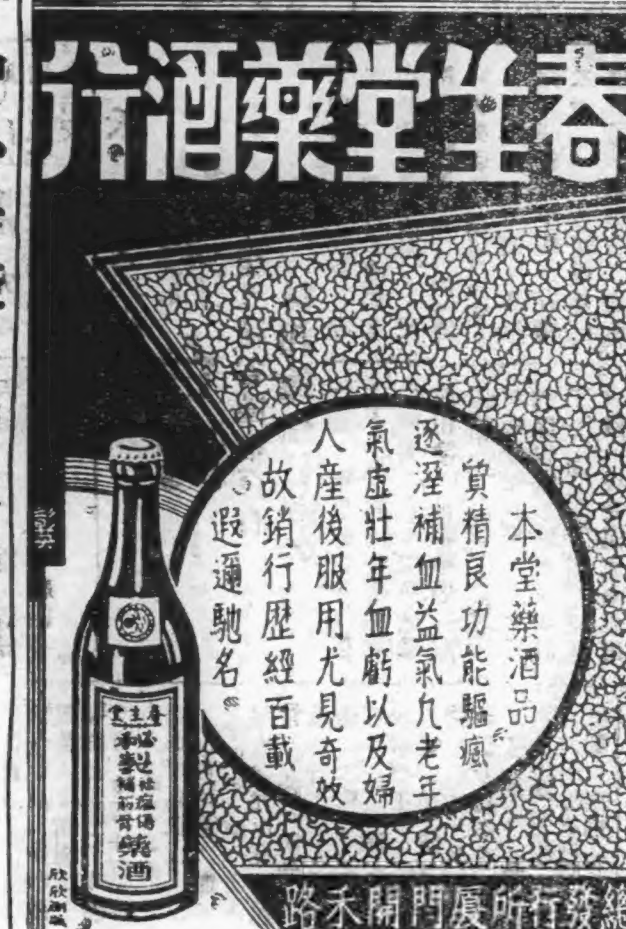 春生堂藥酒行
本堂藥酒品
質精良功能驅瘋
逐溼補血益氣凢老年
氣虛壯年血虧以及婦
人產後服用尤見奇效
故銷行歷經百載
遐邇馳名。
春生堂
藥酒
總發行所廈門開禾路